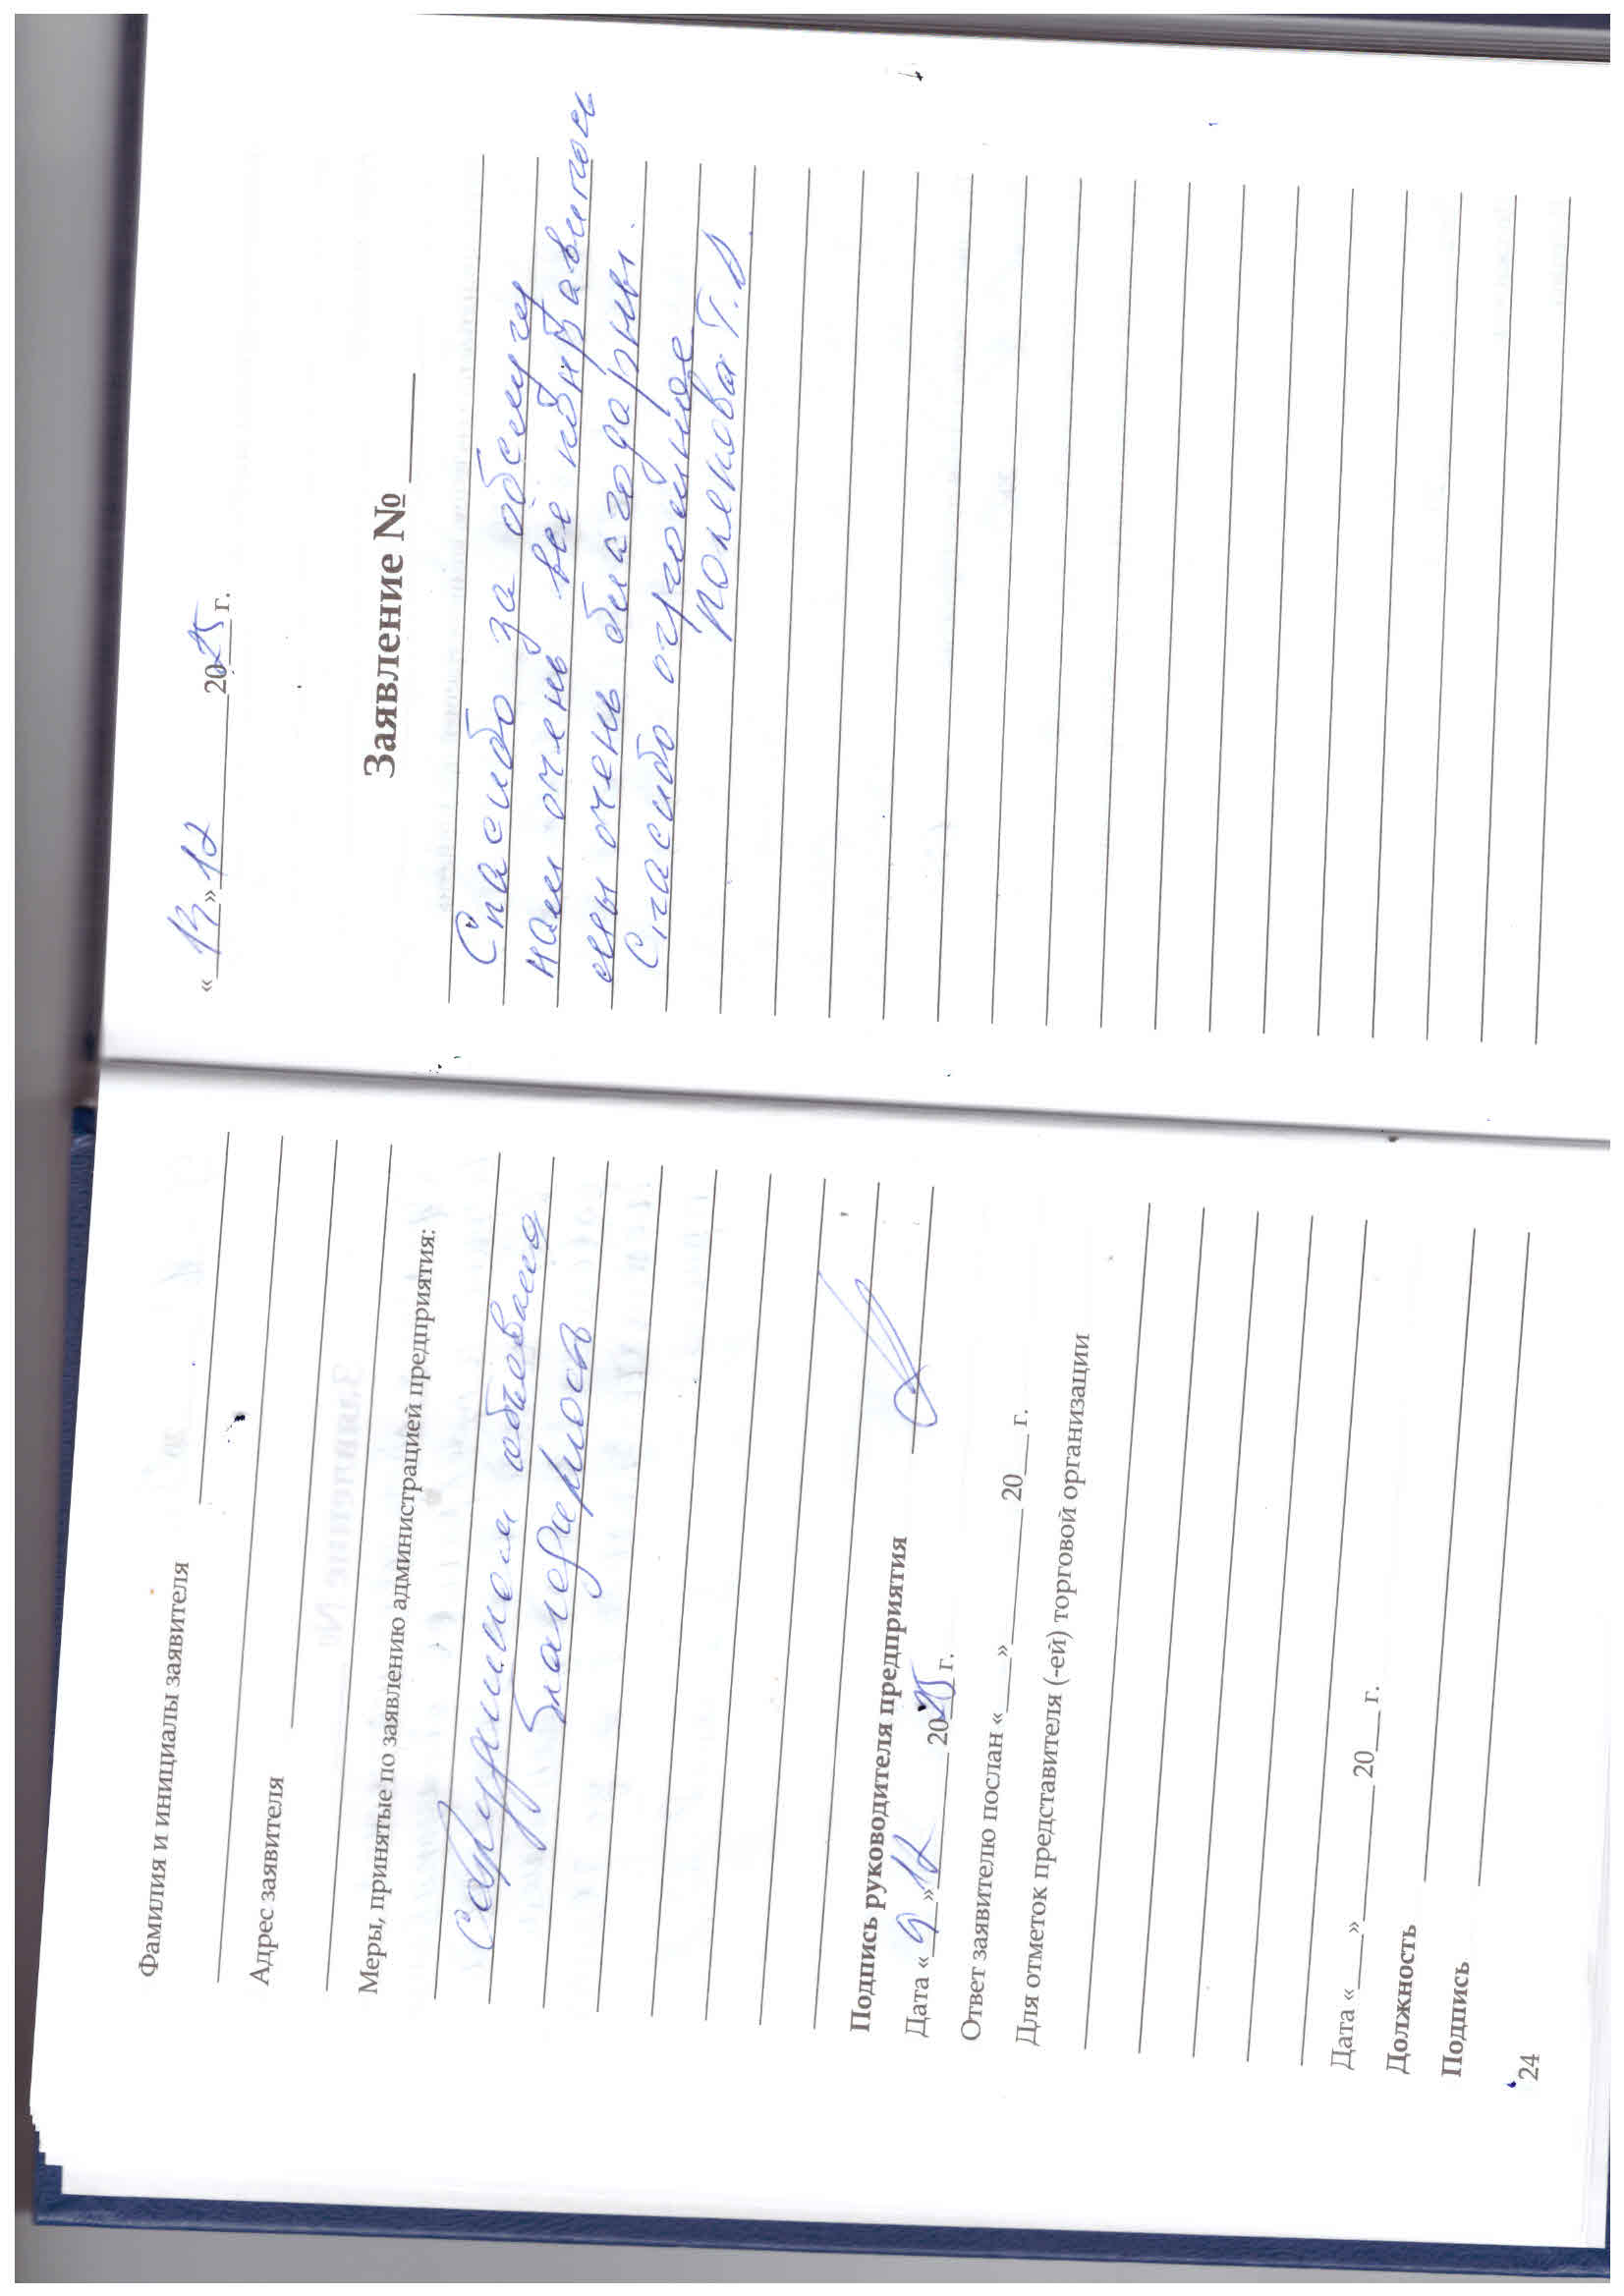 Фамилия и инициалы заявителя
Адрес заявителя
Меры, принятые по заявлению администрацией предприятия:
Сотрудникам объявлена
благодарность
Подпись руководителя предприятия
Дата « 9 » 12 2025 г.
Ответ заявителю послан «___» 20___ г.
Для отметок представителя (-ей) торговой организации
Дата «___» 20___ г.
Должность
Подпись
24
« 13 » 12 2025 г.
Заявление №
Спасибо за
нам очень всё понравилось
мы очень благодарны.
Спасибо огромное
Поленова Т.А